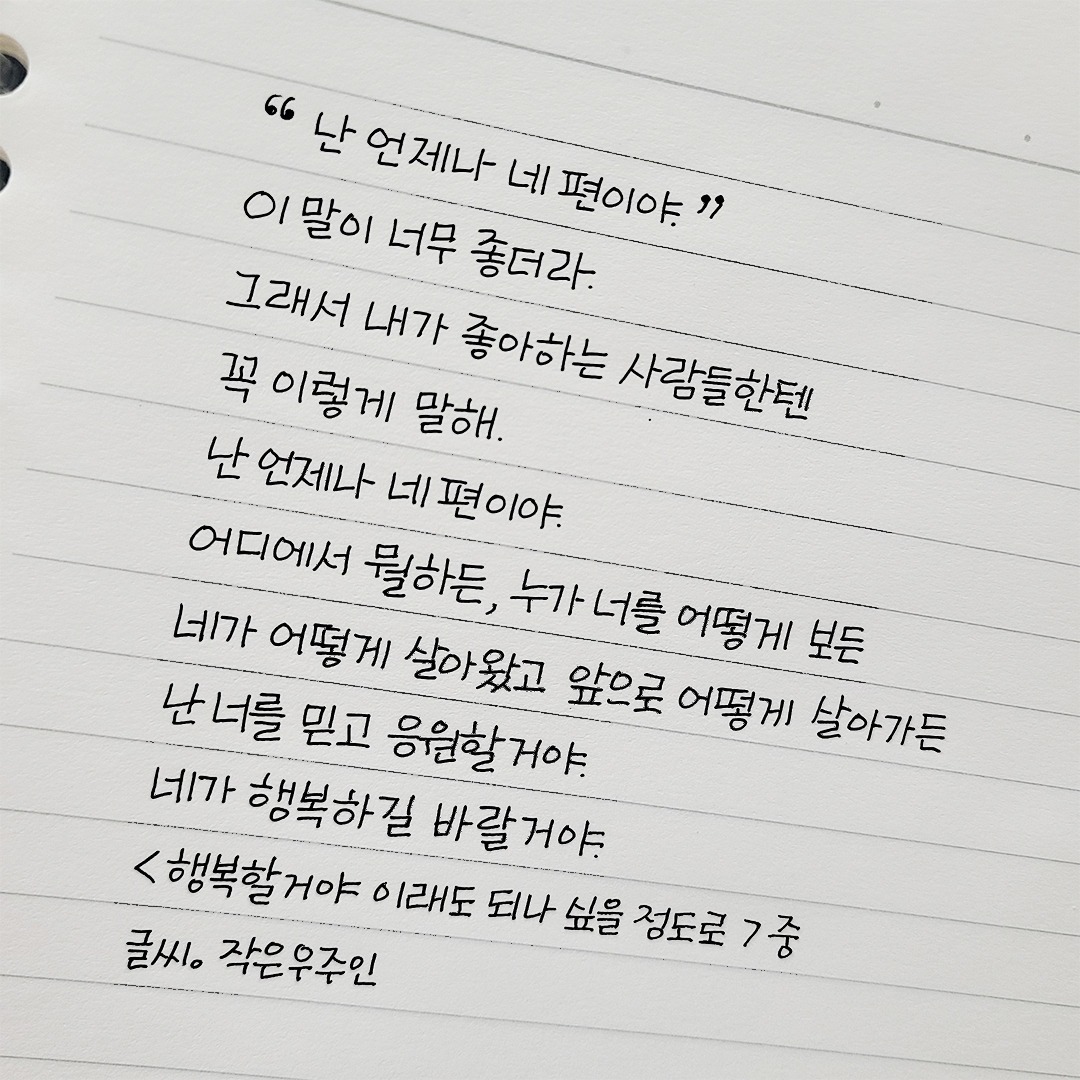 “ 난 언제나 네 편이야. ”
이 말이 너무 좋더라.
그래서 내가 좋아하는 사람들한텐
꼭 이렇게 말해.
난 언제나 네 편이야.
어디에서 뭘하든, 누가 너를 어떻게 보든
네가 어떻게 살아왔고 앞으로 어떻게 살아가든
난 너를 믿고 응원할거야.
네가 행복하길 바랄거야.
<행복할거야 이래도 되나 싶을 정도로> 중
글씨。 작은우주인